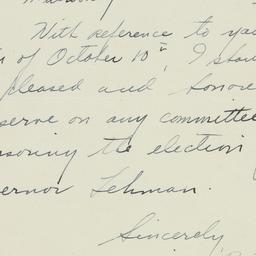 With reference to you
of October 10th, I shou
pleased and honore
serve on any committee
nsoring the election
ernor Lehman.
Sincerely,